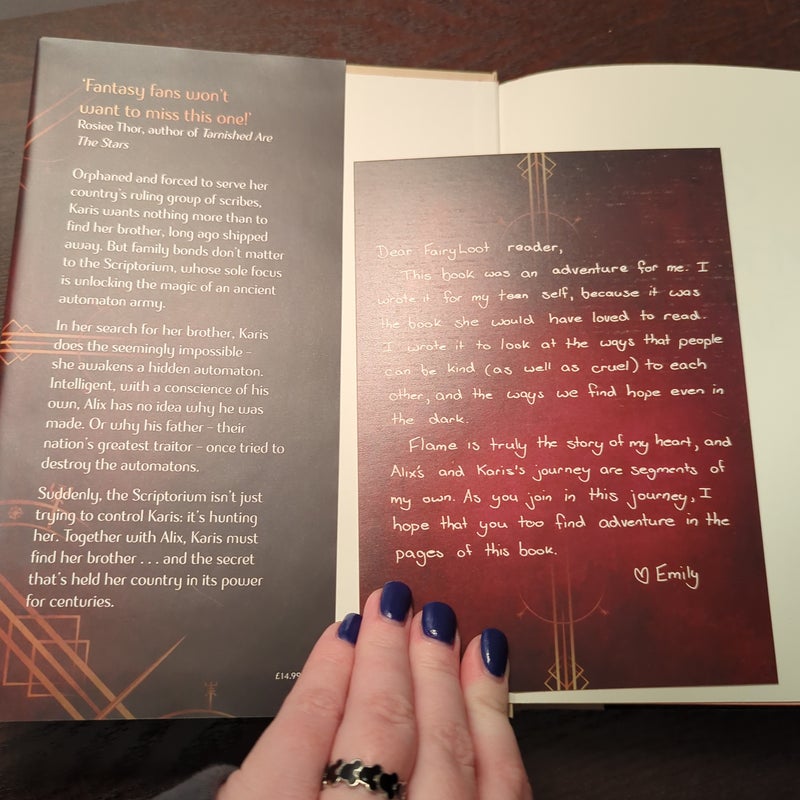 'Fantasy fans won't
want to miss this one!'
Rosiee Thor, author of Tarnished Are
The Stars
Orphaned and forced to serve her
country's ruling group of scribes,
Karis wants nothing more than to
find her brother, long ago shipped
away. But family bonds don't matter
to the Scriptorium, whose sole focus
is unlocking the magic of an ancient
automaton army.
In her search for her brother, Karis
does the seemingly impossible –
she awakens a hidden automaton.
Intelligent, with a conscience of his
own, Alix has no idea why he was
made. Or why his father – their
nation's greatest traitor – once tried to
destroy the automatons.
Suddenly, the Scriptorium isn't just
trying to control Karis: it's hunting
her. Together with Alix, Karis must
find her brother . . . and the secret
that's held her country in its power
for centuries.
£14.99
Dear FairyLoot reader,
This book was an adventure for me. I
wrote it for my teen self, because it was
the book she would have loved to read.
I wrote it to look at the ways that people
can be kind (as well as cruel) to each
other, and the ways we find hope even in
the dark.
Flame is truly the story of my heart, and
Alix's and Karis's journey are segments of
my own. As you join in this journey, I
hope that you too find adventure in the
pages of this book.
♡ Emily